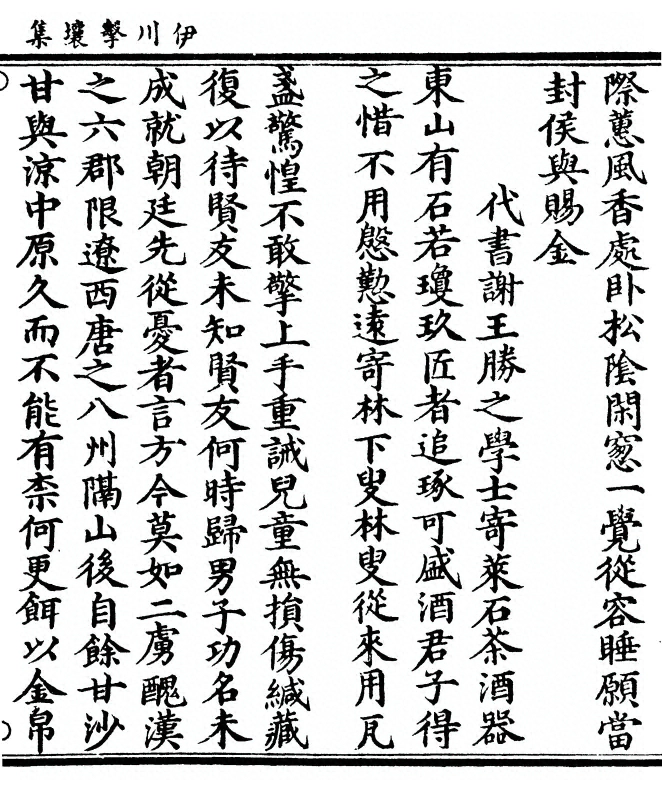 伊川擊壤集
際蕙風香處卧松陰閑窻一覺從容睡願當
封侯與賜金
代書謝王勝之學士寄萊石茶酒器
東山有石若瓊玖匠者追琢可盛酒君子得
之惜不用慇懃遠寄林下叟林叟從來用瓦
盞驚惶不敢擎上手重誡兒童無損傷緘藏
復以待賢友未知賢友何時歸男子功名未
成就朝廷先從憂者言方今莫如二虜醜漢
之六郡限遼西唐之八州隔山後自餘甘沙
甘與涼中原久而不能有柰何更餌以金帛